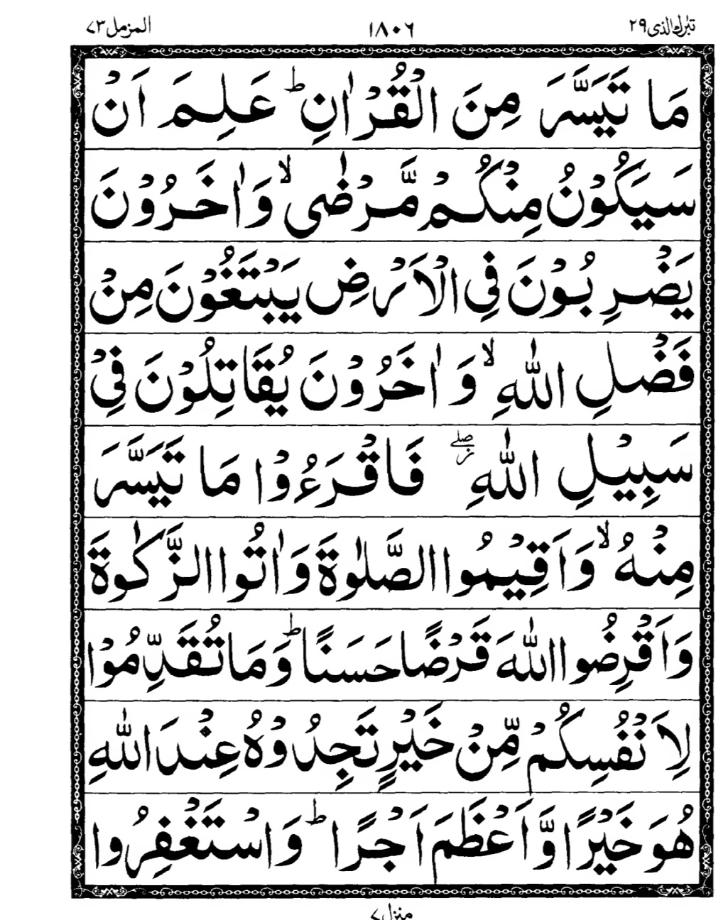 تبٰرك الذی ٢٩ ١٨٠٦ المزمل ٧٣
مَا تَيَسَّرَ مِنَ الْقُرْاٰنِ ؕ عَلِمَ اَنْ
سَيَكُوْنُ مِنْكُمْ مَّرْضٰى ۙ وَاٰخَرُوْنَ
يَضْرِبُوْنَ فِى الْاَرْضِ يَبْتَغُوْنَ مِنْ
فَضْلِ اللّٰهِ ۙ وَاٰخَرُوْنَ يُقَاتِلُوْنَ فِىْ
سَبِيْلِ اللّٰهِ ۖ ز فَاقْرَءُوْا مَا تَيَسَّرَ
مِنْهُ ۙ وَاَقِيْمُوا الصَّلٰوةَ وَاٰتُوا الزَّكٰوةَ
وَاَقْرِضُوا اللّٰهَ قَرْضًا حَسَنًا ؕ وَمَا تُقَدِّمُوْا
لِاَنْفُسِكُمْ مِّنْ خَيْرٍ تَجِدُوْهُ عِنْدَ اللّٰهِ
هُوَ خَيْرًا وَّاَعْظَمَ اَجْرًا ؕ وَاسْتَغْفِرُوا
منزل ٧